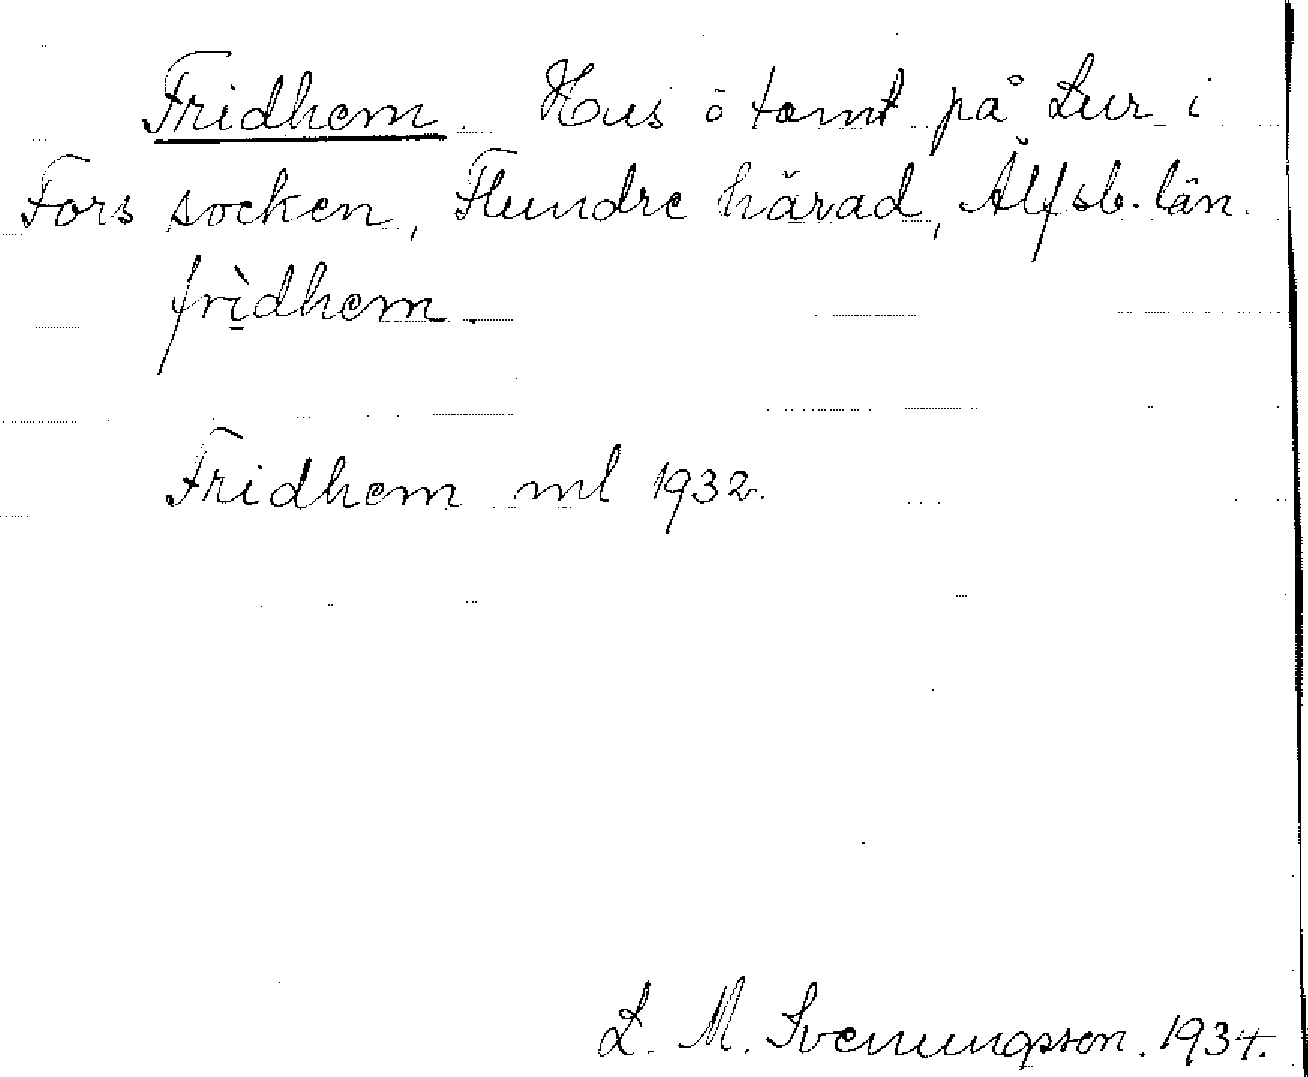 Fridhem. Hus ö tomt på Lur i
Fors socken, Flundre härad, Älfsb. län.
frìdhem.
Fridhem ml 1932.
L. M. Svenungsson. 1934.